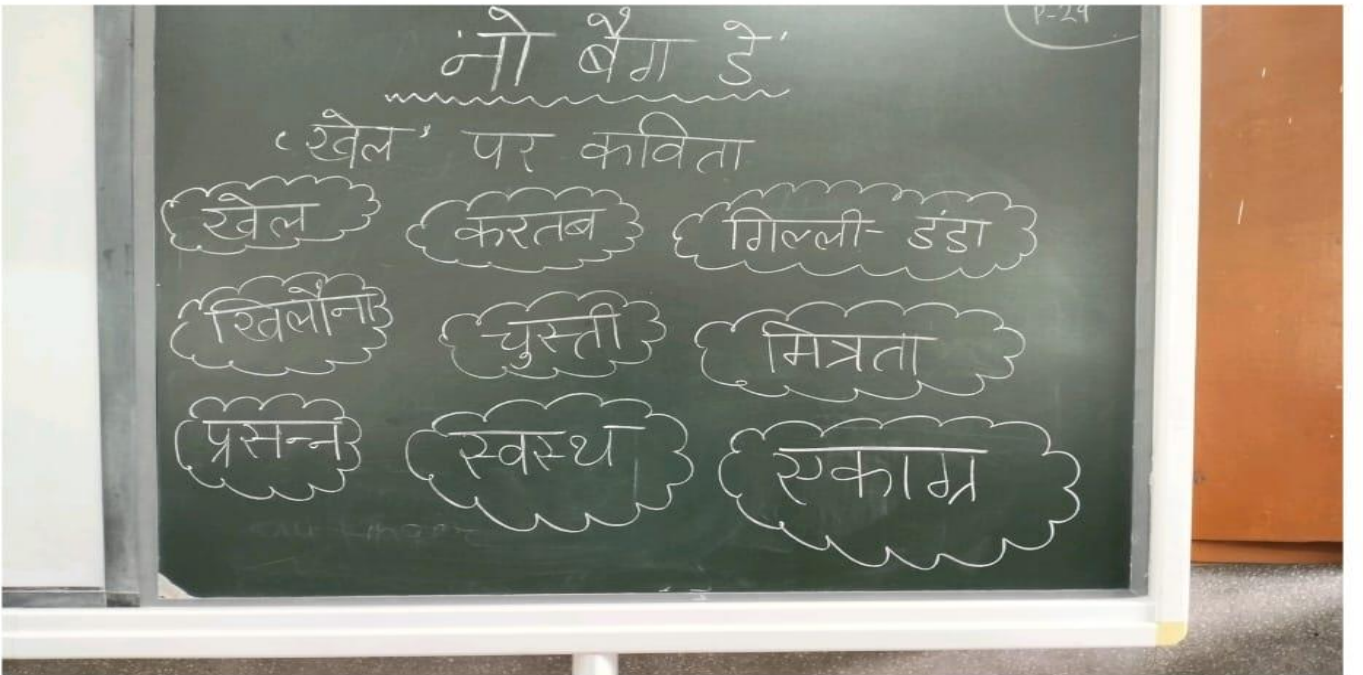 P-24
'नो बैग डे'
'खेल' पर कविता
खेल करतब गिल्ली-डंडा
खिलौना चुस्ती मित्रता
प्रसन्न स्वस्थ एकाग्र